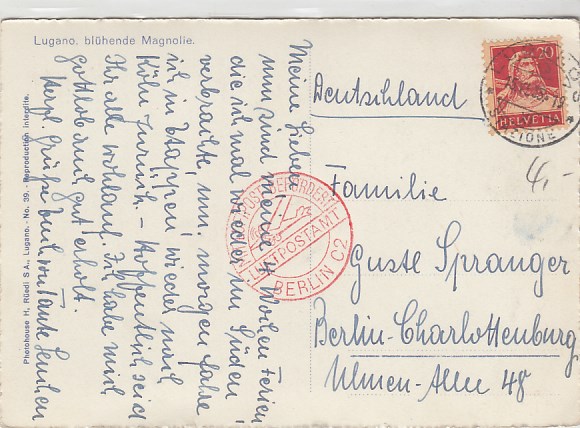 Lugano. blühende Magnolie.
Meine Lieben!
nun sind meine 4 Wochen Ferien
die ich mal wieder im Süden
verbrachte um. morgen fahre
ich in Etappen wieder nach
Köln zurück. - Hoffentlich seid
Ihr alle wohlauf. Ich habe mich
gottlob auch gut erholt.
Herzl. Grüße Euch von Tante Lenchen
Photohouse H. Rüedi S A., Lugano. - No. 39. - Reproduction interdite.
LUFTPOST BEFÖRDERT
LUFTPOSTAMT
BERLIN C2
20
HELVETIA
Deutschland
4,-
Familie
Guste Spranger
Berlin-Charlottenburg
Ulmen-Allee 48